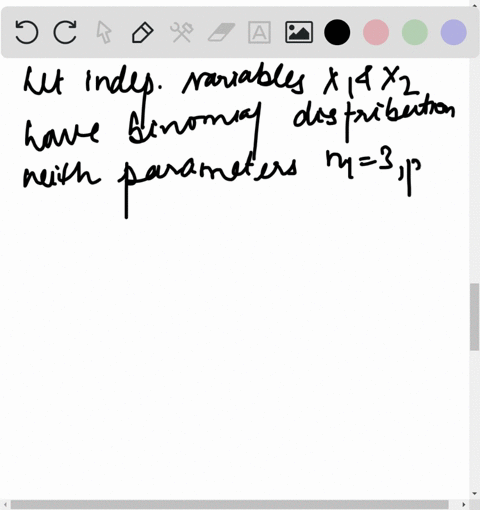 A
let indep. variables X1 & X2
have binomial distribution
with parameters n1 = 3, p